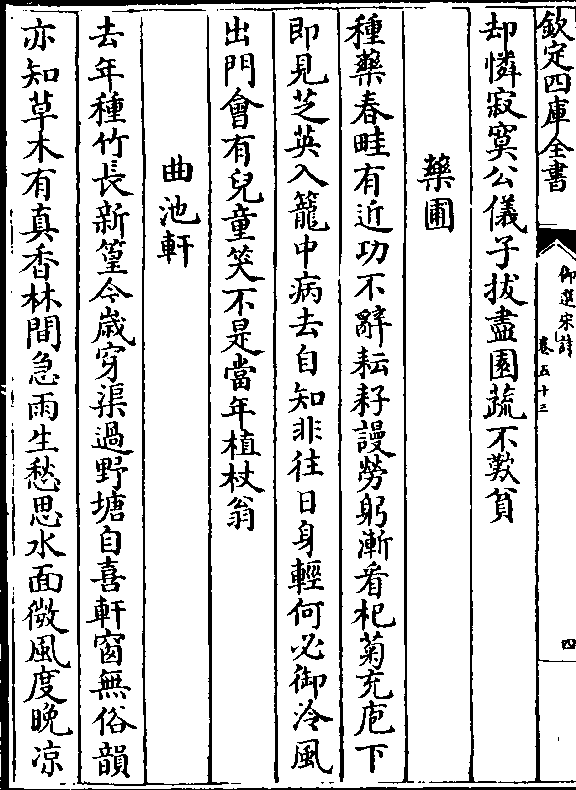 欽定四庫全書
御選宋詩
卷五十三
四
却憐寂寞公儀子拔盡園蔬不歎貧
藥圃
種藥春畦有近功不辭耘耔謾勞躬漸看杞菊充庖下
即見芝英入籠中病去自知非往日身輕何必御冷風
出門會有兒童笑不是當年植杖翁
曲池軒
去年種竹長新篁今歳穿渠過野塘自喜軒窗無俗韻
亦知草木有真香林間急雨生愁思水面微風度晚凉